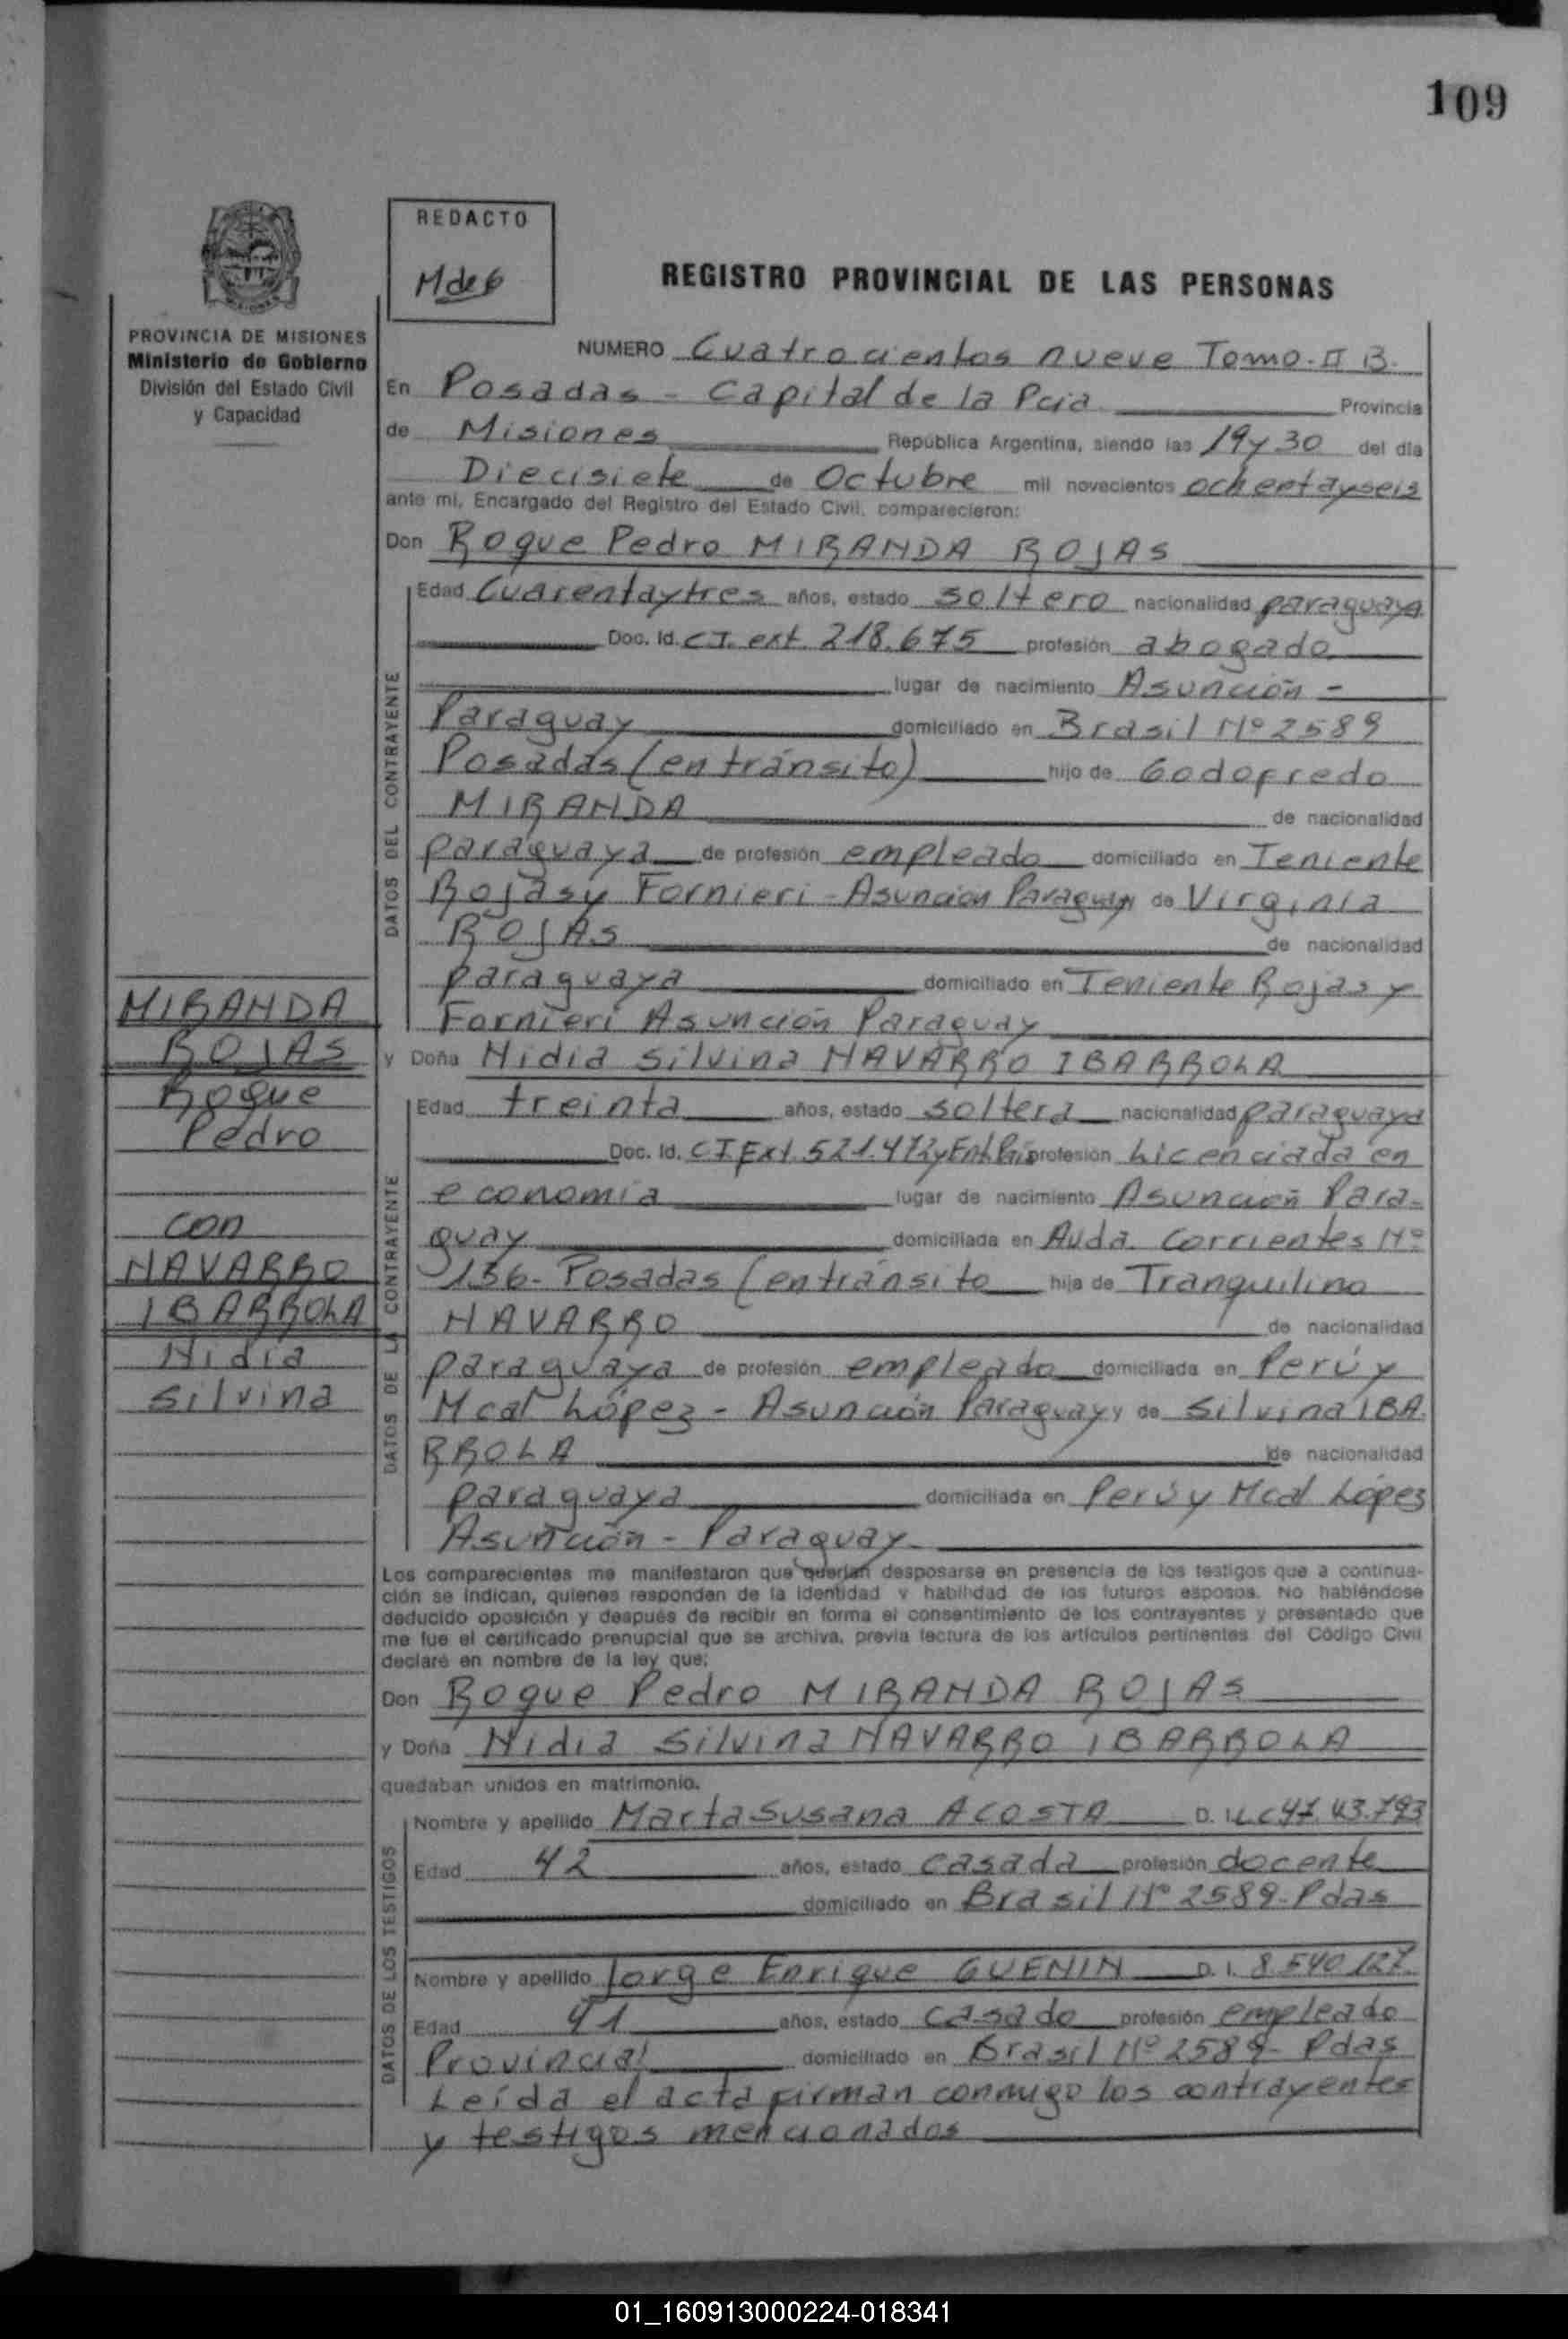 109
REDACTO
MdeG
REGISTRO PROVINCIAL DE LAS PERSONAS
PROVINCIA DE MISIONES
Ministerio de Gobierno
División del Estado Civil
y Capacidad
NUMERO Cuatrocientos nueve Tomo-II B.
En Posadas - Capital de la Pcia Provincia
de Misiones República Argentina, siendo las 19y30 del día
Diecisiete de Octubre mil novecientos ochentayseis
ante mí, Encargado del Registro del Estado Civil, comparecieron:
Don Roque Pedro MIRANDA ROJAS
Edad Cuarentaytres años, estado soltero nacionalidad paraguaya
Doc. Id. CI. ext. 218.675 profesión abogado
lugar de nacimiento Asunción -
Paraguay domiciliado en Brasil Nº 2589
Posadas (en tránsito) hijo de Godofredo
MIRANDA de nacionalidad
paraguaya de profesión empleado domiciliado en Teniente
Rojas y Fornieri - Asunción Paraguay y de Virginia
ROJAS de nacionalidad
paraguaya domiciliado en Teniente Rojas y
Fornieri Asunción Paraguay
y Doña Nidia Silvina NAVARRO IBARROLA
Edad treinta años, estado soltera nacionalidad paraguaya
Doc. Id. CI Ext. 521.472 y profesión Licenciada en
economía lugar de nacimiento Asunción Para-
guay domiciliada en Avda. Corrientes Nº
156- Posadas (en tránsito hija de Tranquilino
NAVARRO de nacionalidad
paraguaya de profesión empleado domiciliada en Perú y
Mcal López - Asunción Paraguay y de Silvina IBA.
RROLA de nacionalidad
paraguaya domiciliada en Perú y Mcal López
Asunción - Paraguay.
DATOS DEL CONTRAYENTE
DATOS DE LA CONTRAYENTE
MIRANDA
ROJAS
Roque
Pedro
con
NAVARRO
IBARROLA
Nidia
Silvina
Los comparecientes me manifestaron que querían desposarse en presencia de los testigos que a continua-
ción se indican, quienes responden de la identidad y habilidad de los futuros esposos. No habiéndose
deducido oposición y después de recibir en forma el consentimiento de los contrayentes y presentado que
me fue el certificado prenupcial que se archiva, previa lectura de los artículos pertinentes del Código Civil
declaré en nombre de la ley que:
Don Roque Pedro MIRANDA ROJAS
y Doña Nidia Silvina NAVARRO IBARROLA
quedaban unidos en matrimonio.
Nombre y apellido Marta Susana ACOSTA D. I.
Edad 42 años, estado casada profesión docente
domiciliado en Brasil Nº 2589- Pdas
Nombre y apellido Jorge Enrique GUENIN D. I. 8.540.127.
Edad 41 años, estado casado profesión empleado
Provincial domiciliado en Brasil Nº 2589- Pdas
Leída el acta firman conmigo los contrayentes
y testigos mencionados
DATOS DE LOS TESTIGOS
01_160913000224-018341